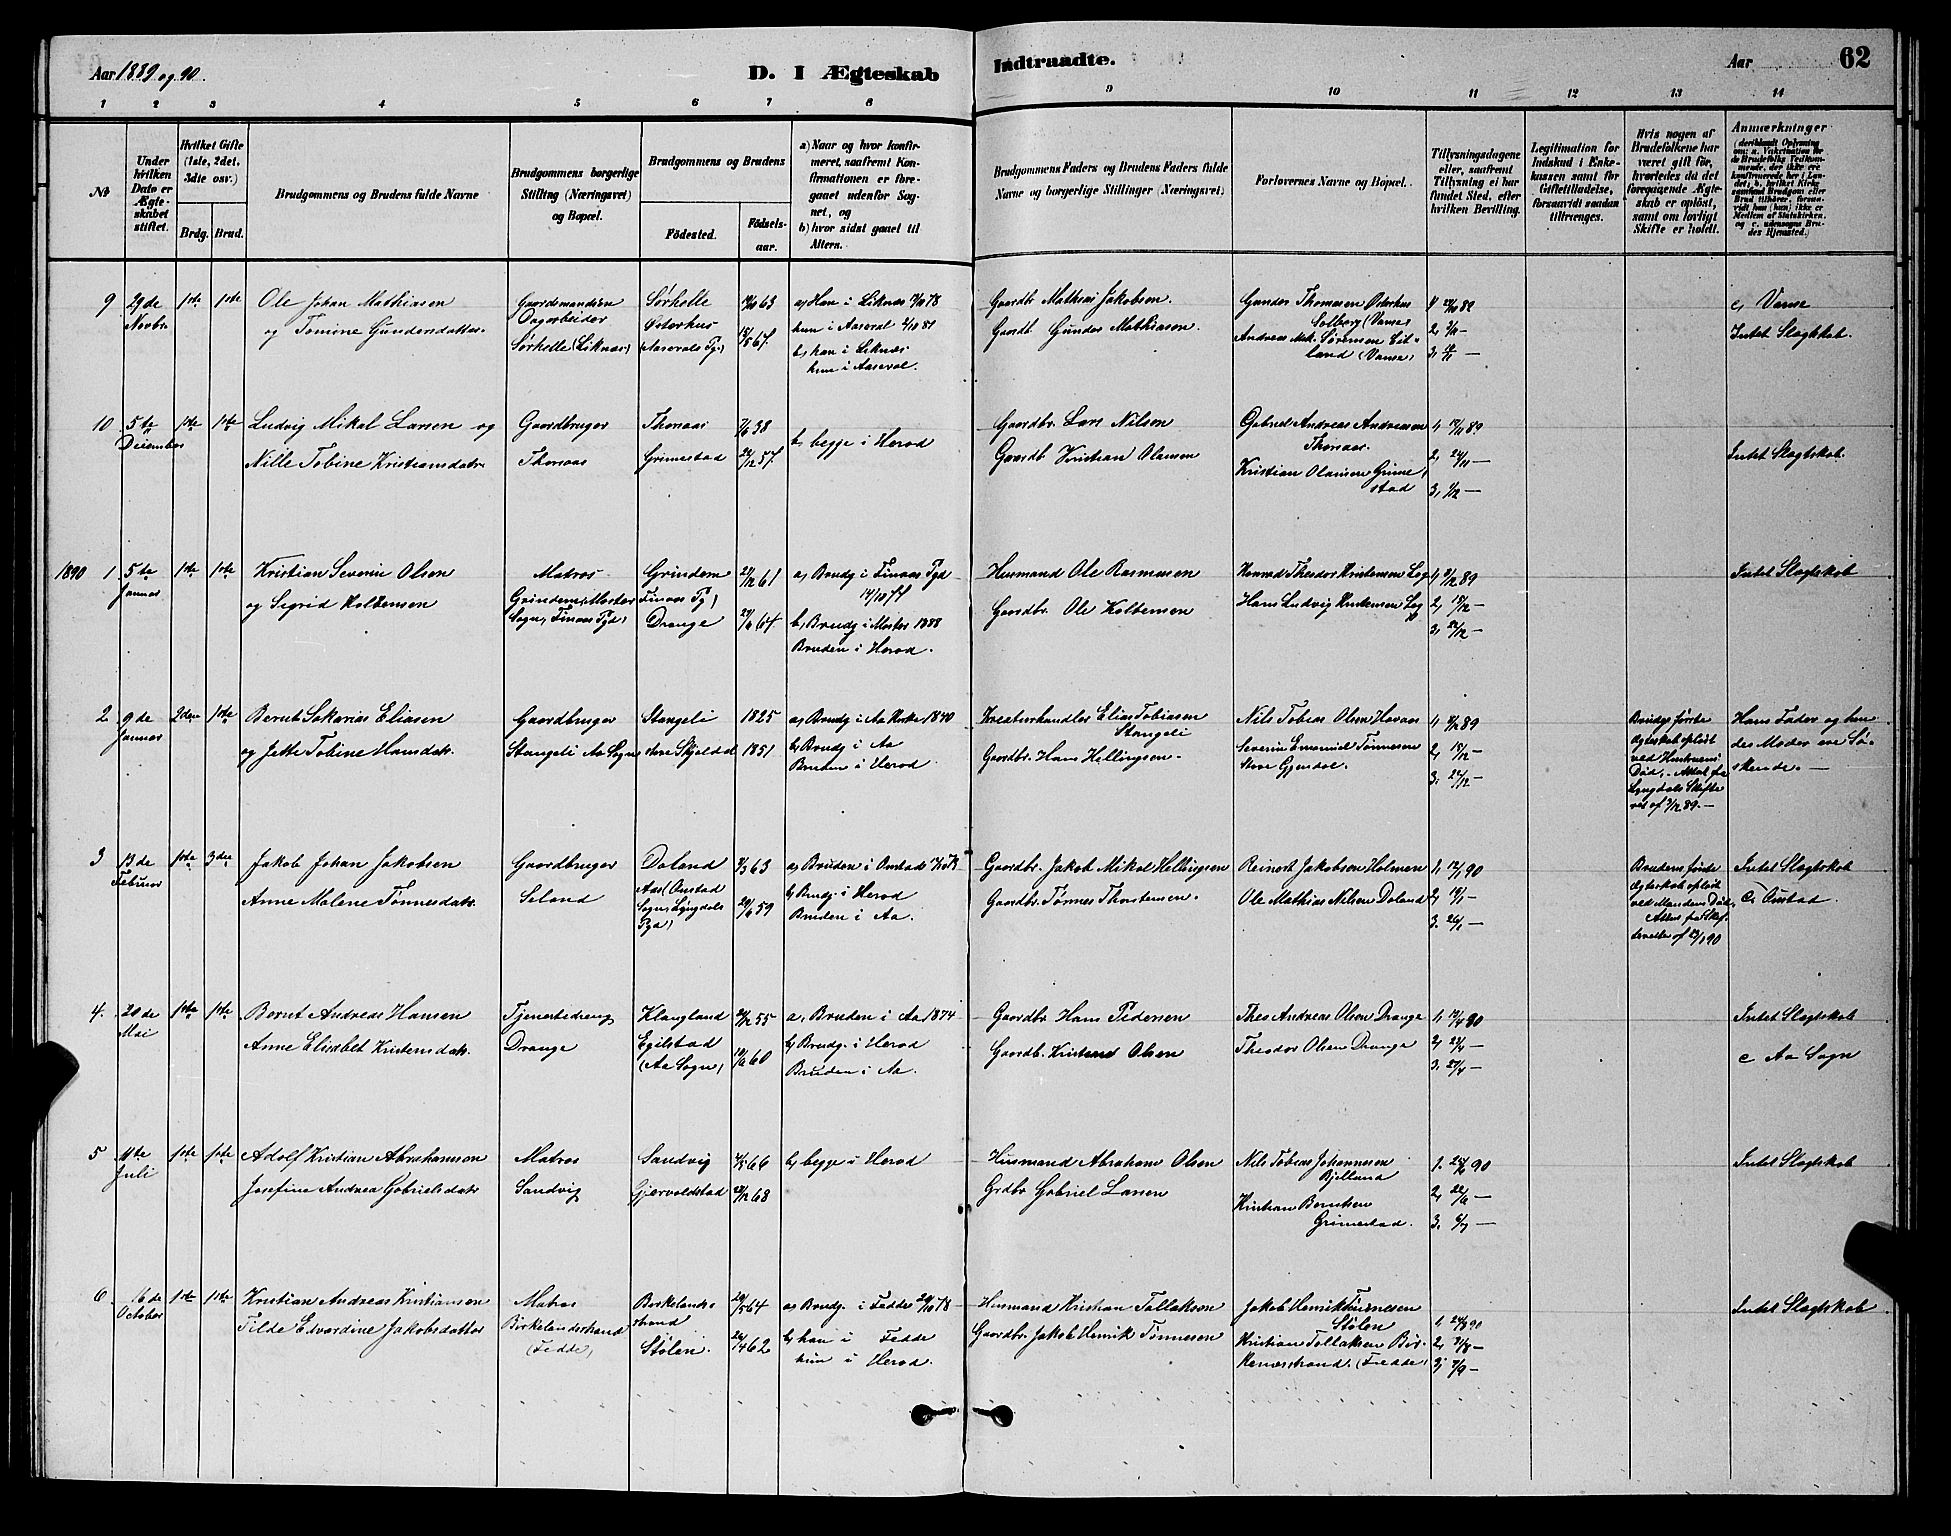 Aar 1889 og 90.
D. I Ægteskab
Indtraadte.
Aar
62
1 2 3 4 5 6 7 8 9 10 11 12 13 14
No
Under hvilken Dato er Ægteskabet stiftet.
Hvilket Gifte (1ste, 2det, 3die osv.)
Brdg. Brud.
Brudgommens og Brudens fulde Navne
Brudgommens borgerlige Stilling (Næringsvei) og Bopæl.
Brudgommens og Brudens
Födested.
Födsels-aar.
a) Naar og hvor konfirmeret, saafremt Konfirmationen er foregaaet udenfor Sognet, og
b) hvor sidst gaaet til Alters.
Brudgommens Faders og Brudens Faders fulde Navne og borgerlige Stillinger (Næringsvei)
Forlovernes Navne og Bopæl.
Tillysningsdagene eller, saafremt Tillysning ei har fundet Sted, efter hvilken Bevilling.
Legitimation for Indskud i Enkekassen samt for Giftetilladelse, forsaavidt saadan tiltrænges.
Hvis nogen af Brudefolkene har været gift för, hvorledes da det foregaaende Ægteskab er oplöst, samt om lovligt Skifte er holdt.
Anmærkninger
9 29de Novbr. 1ste 1ste
Ole Johan Mathiasen
og Tomine Gundersdatter
Gaardmandssön
Dagarbeider
Sørhelle (Liknæs)
Sørhelle
Østerhus
(Aaserals Pg.)
63
67
a) Han i Liknæs 78
hun i Aaseral 81
b) han i Liknæs
hun i Aaseral.
Gaardb. Mathias Jakobsen.
Gaardb. Gunder Mathiasen.
Gunder Thomasen Østerhus
Solberg (Vanse)
Andreas Mik. Sørensen
(Vanse)
c, Vanse
Intet Slagtskab.
10 5te December 1ste 1ste
Ludvig Mikal Larsen og
Nille Tobine Kristiansdatr.
Gaardbruger
Thonaas
Thonaas
Grimestad
38
57
b, begge i Herad
Gaardbr. Lars Nilsen
Gaardb. Kristian Olausen
Gabriel Andreas Andreasen
Thonaas.
Kristian Olausen Grimestad
1, 17/11 89
2, 24/11 —
3, 1/12 —
Intet Slagtskab.
1890 1 5te Januar 1ste 1ste
Kristian Severin Olsen
og Sigrid Kolbensen
Matros
Grindem, Moster
Sogn, Finaas Pgd.
Grindem
Finaas Pg.
Drange
61
64
a, Brudg. i Finaas Pgd
b, Brudg. i Moster 1888
Bruden i Herad.
Husmand Ole Rasmusen
Gaardbr. Ole Kolbensen
Konrad Theodor Kristensen Log
Hans Ludvig Kristensen Log
1, 8/12 89
2, 15/12 —
3, 22/12 —
Intet Slagtskab
2 9de Januar 2den 1ste
Bernt Sakarias Eliasen
og Jette Tobine Hansdatr.
Gaardbruger
Stangeli Aa Sogn
Stangeli
Store Skjeldal
1825
1851
a, Brudg. i Aa Kirke 1840
b, Brudg. i Aa
Bruden i Herad
Kreaturhandler Elias Tobiasen
Stangeli
Gaardbr. Hans Hellingsen.
Nils Tobias Olsen Haraas
Severin Emanuel Tønnesen
Store Gjerdal.
1, 8/12 89
2, 15/12 —
3. 22/12 —
Brudgs første
Ægteskab opløst
ved Hustruens
Død, Attest fra
Lyngdals Skifte-
ret af 3/12 89. —
Hans Fader og hen-
des Moder ere Sø-
skende. —
3 13de Februar 1ste 3die
Jakob Johan Jakobsen
Anne Malene Tønnesdatr.
Gaardbruger
Seland
Doland
Aas (Qvaas
Sogn, Lyngdals
Pgd)
63
59
b, Brudg. i Herad
Bruden i Aa.
Gaardbr. Jakob Mikal Hellingsen
Gaardbr. Tønnes Thorstensen.
Reinert Jakobsen Holmen
Ole Mathias Nilsen Doland
1, 12/1 90
2, 19/1 —
3. 26/1 —
Ægteskab opløst
ved Mandens Død,
Intet Slagtskab
4. 20de Mai 1ste 1ste
Bernt Andreas Hansen
Anne Elisabet Kristensdatr.
Tjenestedreng
Drange
Klungland
Egilstad
(Aa Sogn)
55
60
a, Bruden i Aa 1874
b, Brudg. i Herad
Bruden i Aa.
Gaardbr. Hans Pedersen
Gaardb. Kristend Olsen
Theo Andreas Olsen Drange
Theodor Olsen Drange
Intet Slagtskab
c Aa Sogn
5 11te Juli 1ste 1ste
Adolf Kristian Abrahamsen
Josefine Andrea Gabrielsdatr
Matros
Sandvig
Sandvig
Gjervoldstad
66
68
b, begge i Herad
Husmand Abraham Olsen
Grdbr Gabriel Larsen
Nils Tobias Johannesen
Bjelland
Kristian Berntsen
Grimestad.
2, 22/6 —
3. 6/7 —
Intet Slagtskab
6. 16de October 1ste 1ste
Kristian Andreas Kristiansen
Tilde Edvardine Jakobsdatter
Matros
Birkelandsstrand
(Fedde)
Birkelands-
strand
Stølen.
64
62
a, Brudg. i Fedde 78
b, han i Fedde
hun i Herad.
Husmand Kristian Tollaksen
Gaardbr. Jakob Henrik Tønnesen
Jakob Henrik Tønnesen
Stølen
Kristian Tollaksen Bir-
(Fedde)
1. 24/8 90
2, 31/8 —
3, 7/9 —
Intet Slagtskab